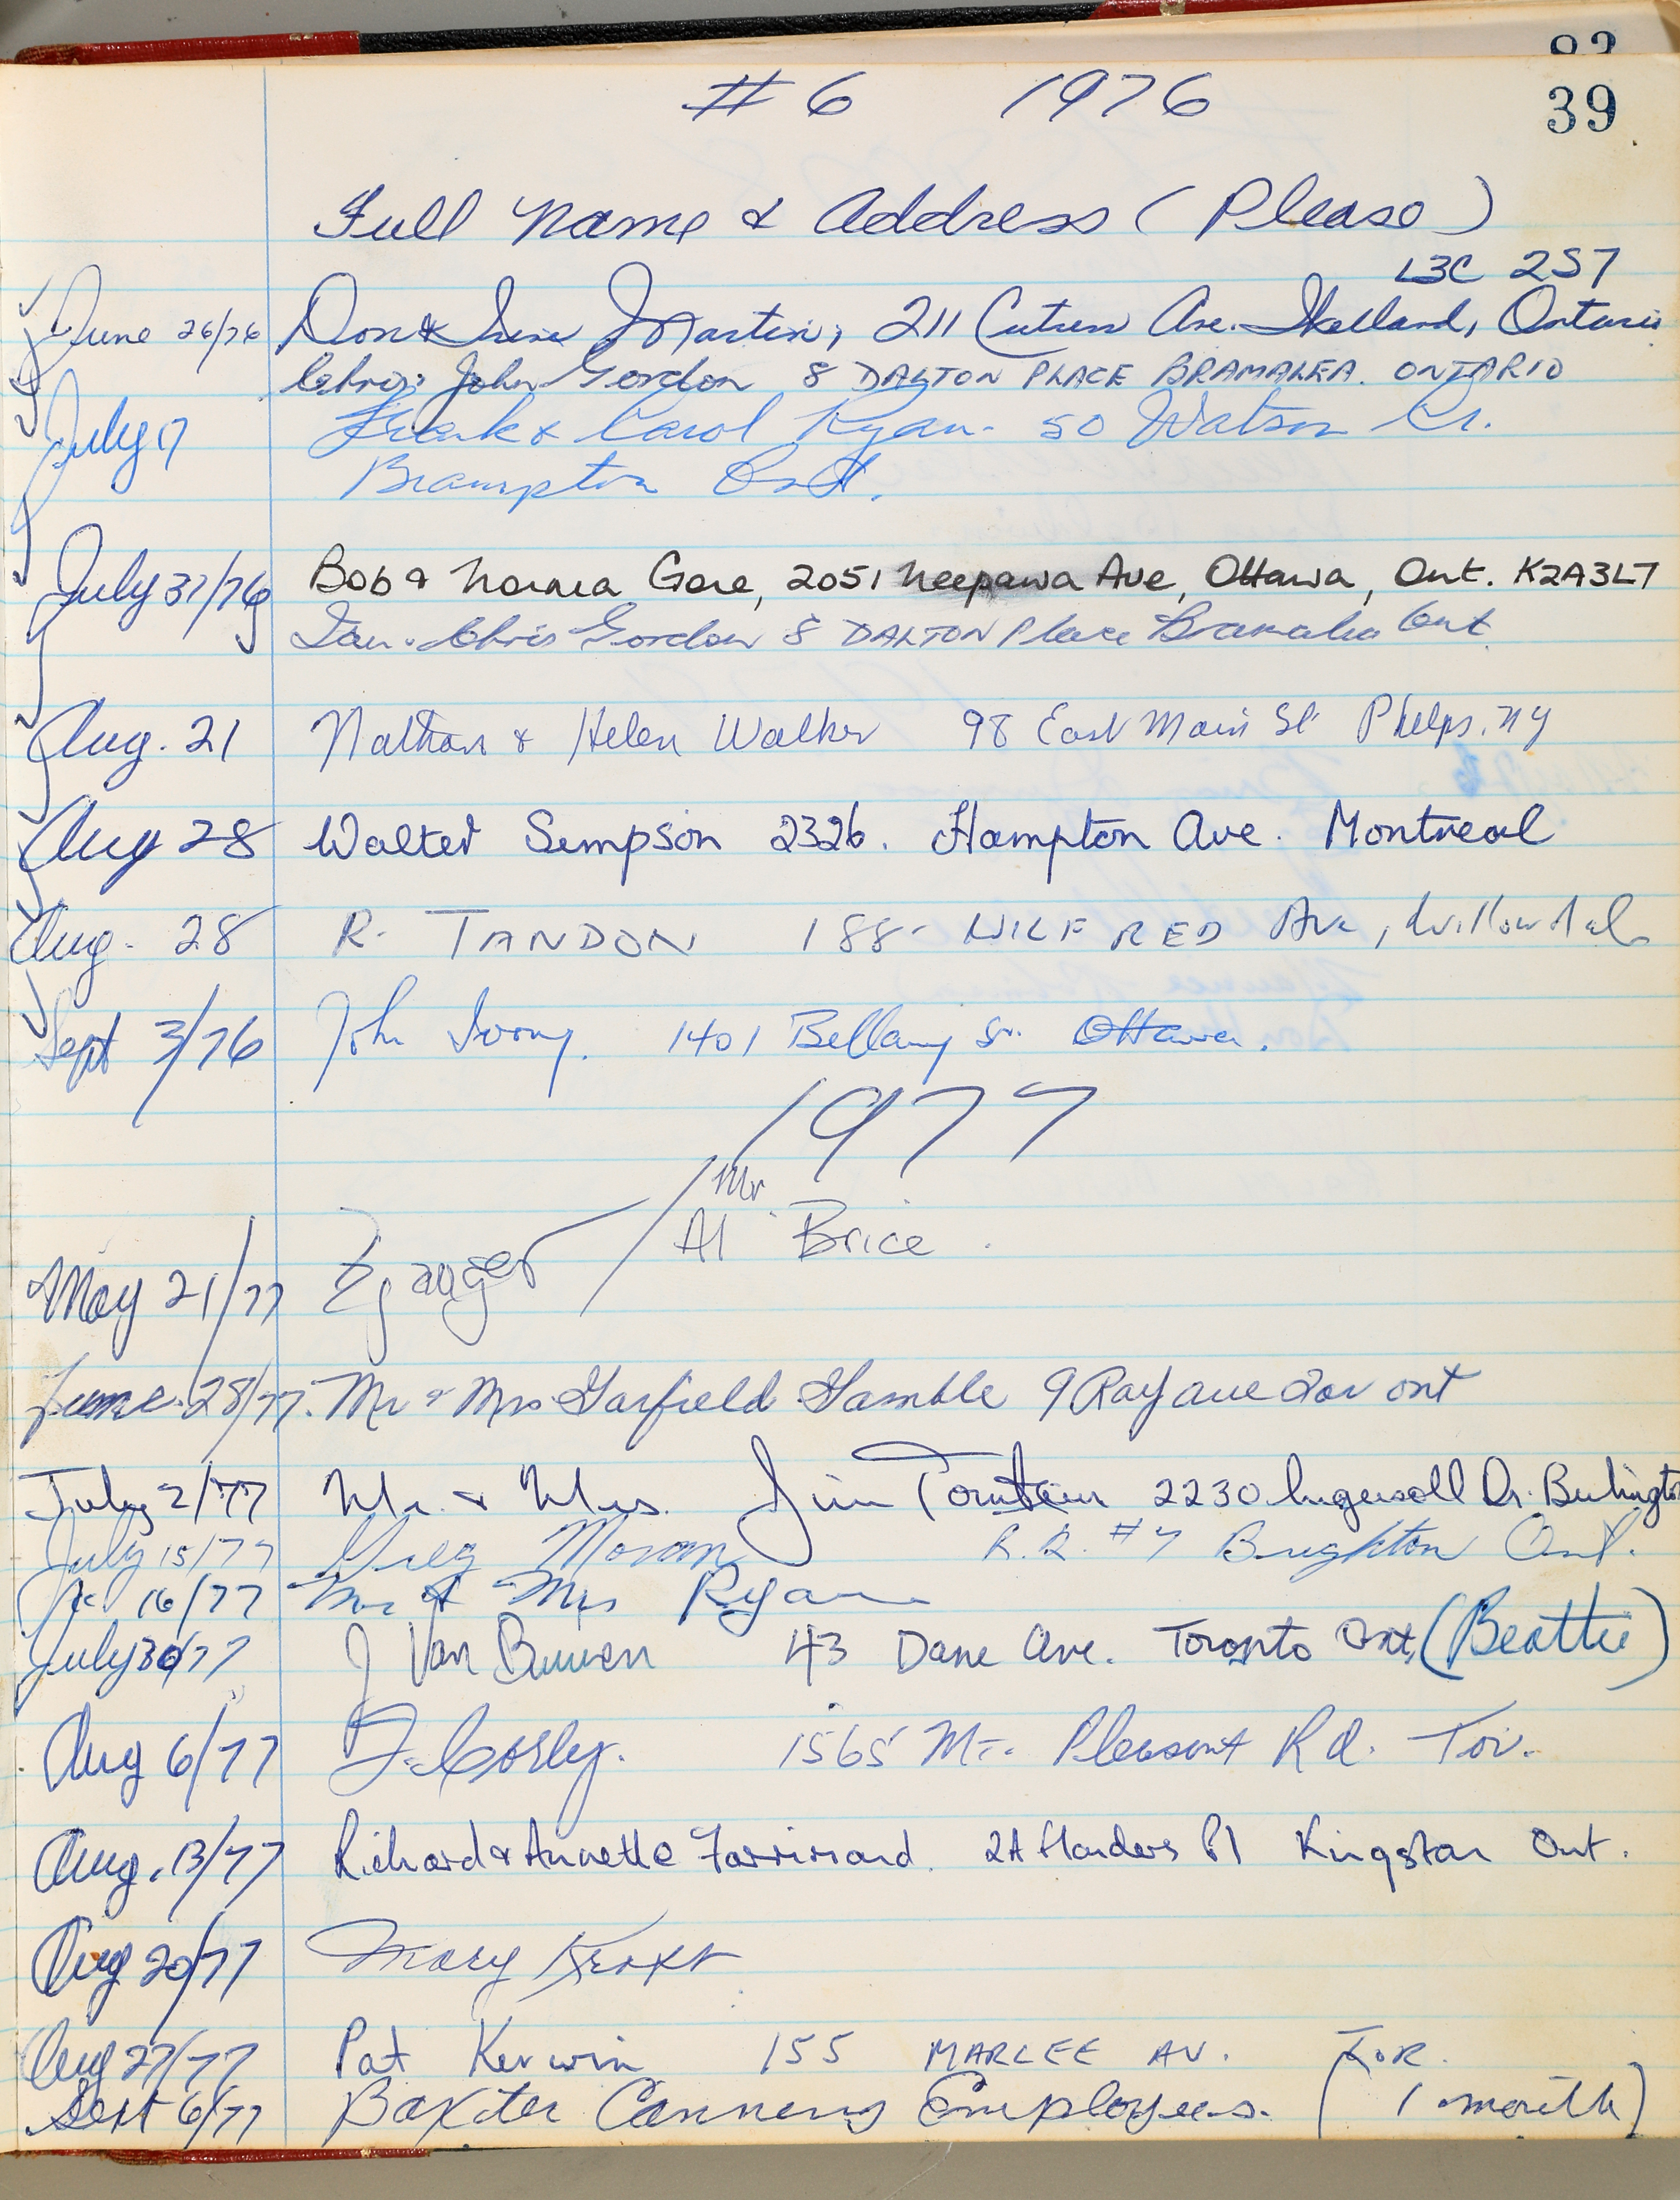 39
# 6 1976
Full Name & Address (Please)
L3C 2S7
June 26/76 Don & Irene Martin, 211 Ave. Welland, Ontario
Chris John Gordon 8 DALTON PLACE BRAMALEA. ONTARIO
July 17 Frank & Carol Ryan - 50 Watson Cr.
Brampton Ont.
July 31/76 Bob & Norma Gore, 2051 Neepawa Ave, Ottawa, Ont. K2A3L7
Ian - Chris Gordon 8 DALTON Place Bramalea Ont
Aug. 21 Nathan & Helen Walker 98 East Main St Phelps, NY
Aug 28 Walter Sempson 2326. Hampton Ave. Montreal
Aug. 28 R. TANDON 188- WILFRED Ave, Willowdale
Sept 3/76 John Ivory. 1401 Bellamy St. Ottawa.
1977
Mr.
May 21/77 / Al Brice.
June 28/77. Mr & Mrs Garfield Gamble 9 Ray ave Tor ont
July 2/77 Mr. & Mrs. Jim 2230 Ingersoll Dr. Burlington
July 15/77 Greg Moran R.R. #7 Brighton Ont.
16/77 Mr & Mrs Ryan
July 30/77 J Van Buuren 43 Dane Ave. Toronto Ont, (Beattie)
Aug 6/77 J. Corley. 1565 Mt. Pleasant Rd. Tor.
Aug. 13/77 Richard & Annette 24 Flanders Pl Kingston Ont.
Aug 20/77 Mary
Aug 27/77 Pat Kerwin 155 MARLEE AV. TOR.
Sept 6/77 Baxter Canning Employees. (1 month)